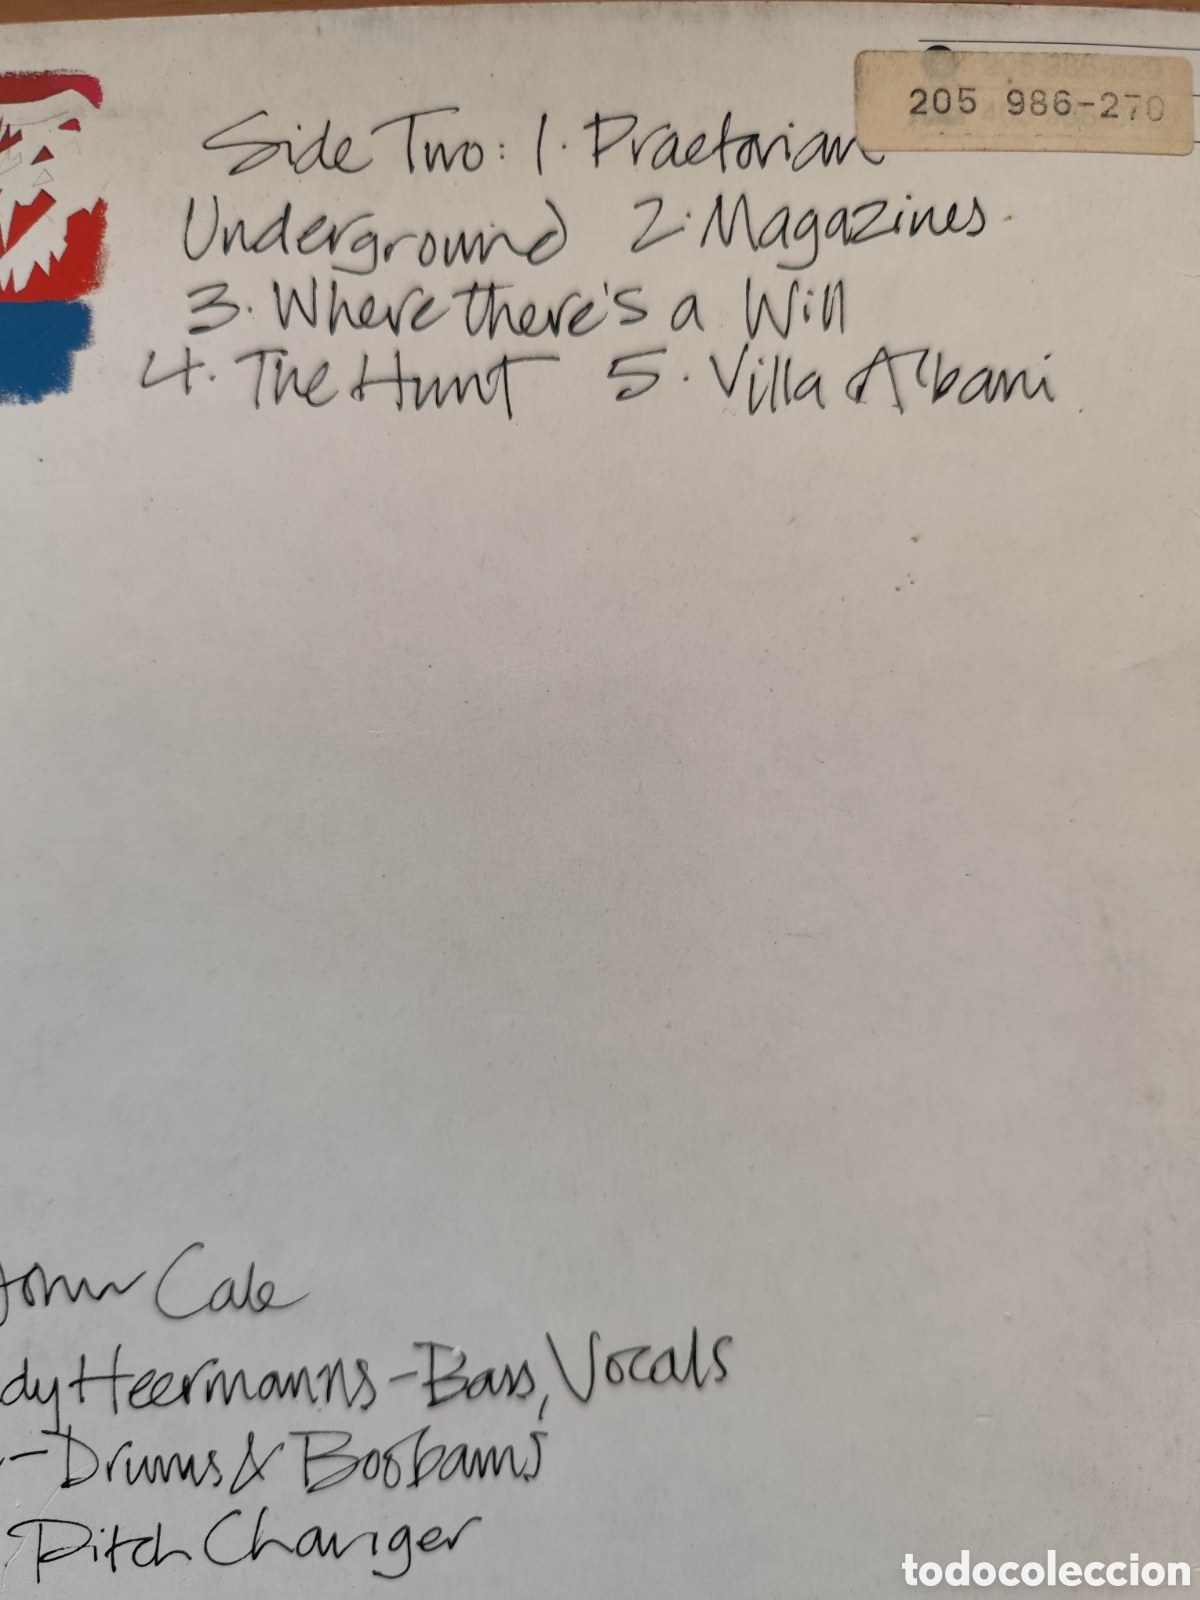 205 986-270
Side Two: 1. Praetorian
Underground 2. Magazines
3. Where there's a Will
4. The Hunt 5. Villa Albani
John Cale
dy Heermanns - Bass, Vocals
- Drums & Boobams
Pitch Changer
todocoleccion